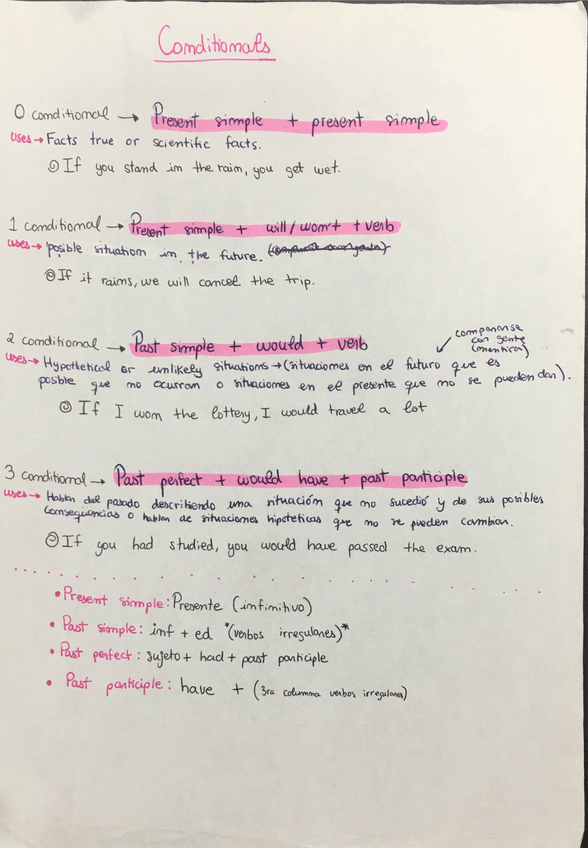 Conditionals
0 conditional → Present simple + present simple
uses → Facts true or scientific facts.
☺ If you stand in the rain, you get wet.
1 conditional → Present simple + will/won't + verb
uses → posible situation in the future.
☺ If it rains, we will cancel the trip.
2 conditional → Past simple + would + verb
compararse
con gente
(mentiras)
uses → Hypothetical or unlikely situations → (situaciones en el futuro que es
posible que no ocurran o situaciones en el presente que no se pueden dar).
☺ If I won the lottery, I would travel a lot
3 conditional → Past perfect + would have + past participle
uses → Hablar del pasado describiendo una situación que no sucedió y de sus posibles
consequencias o hablar de situaciones hipoteticas que no se pueden cambiar.
☺ If you had studied, you would have passed the exam.
• Present simple: Presente (infinitivo)
• Past simple: inf + ed *(verbos irregulares)*
• Past perfect: sujeto + had + past participle
• Past participle: have + (3ra columna verbos irregulares)